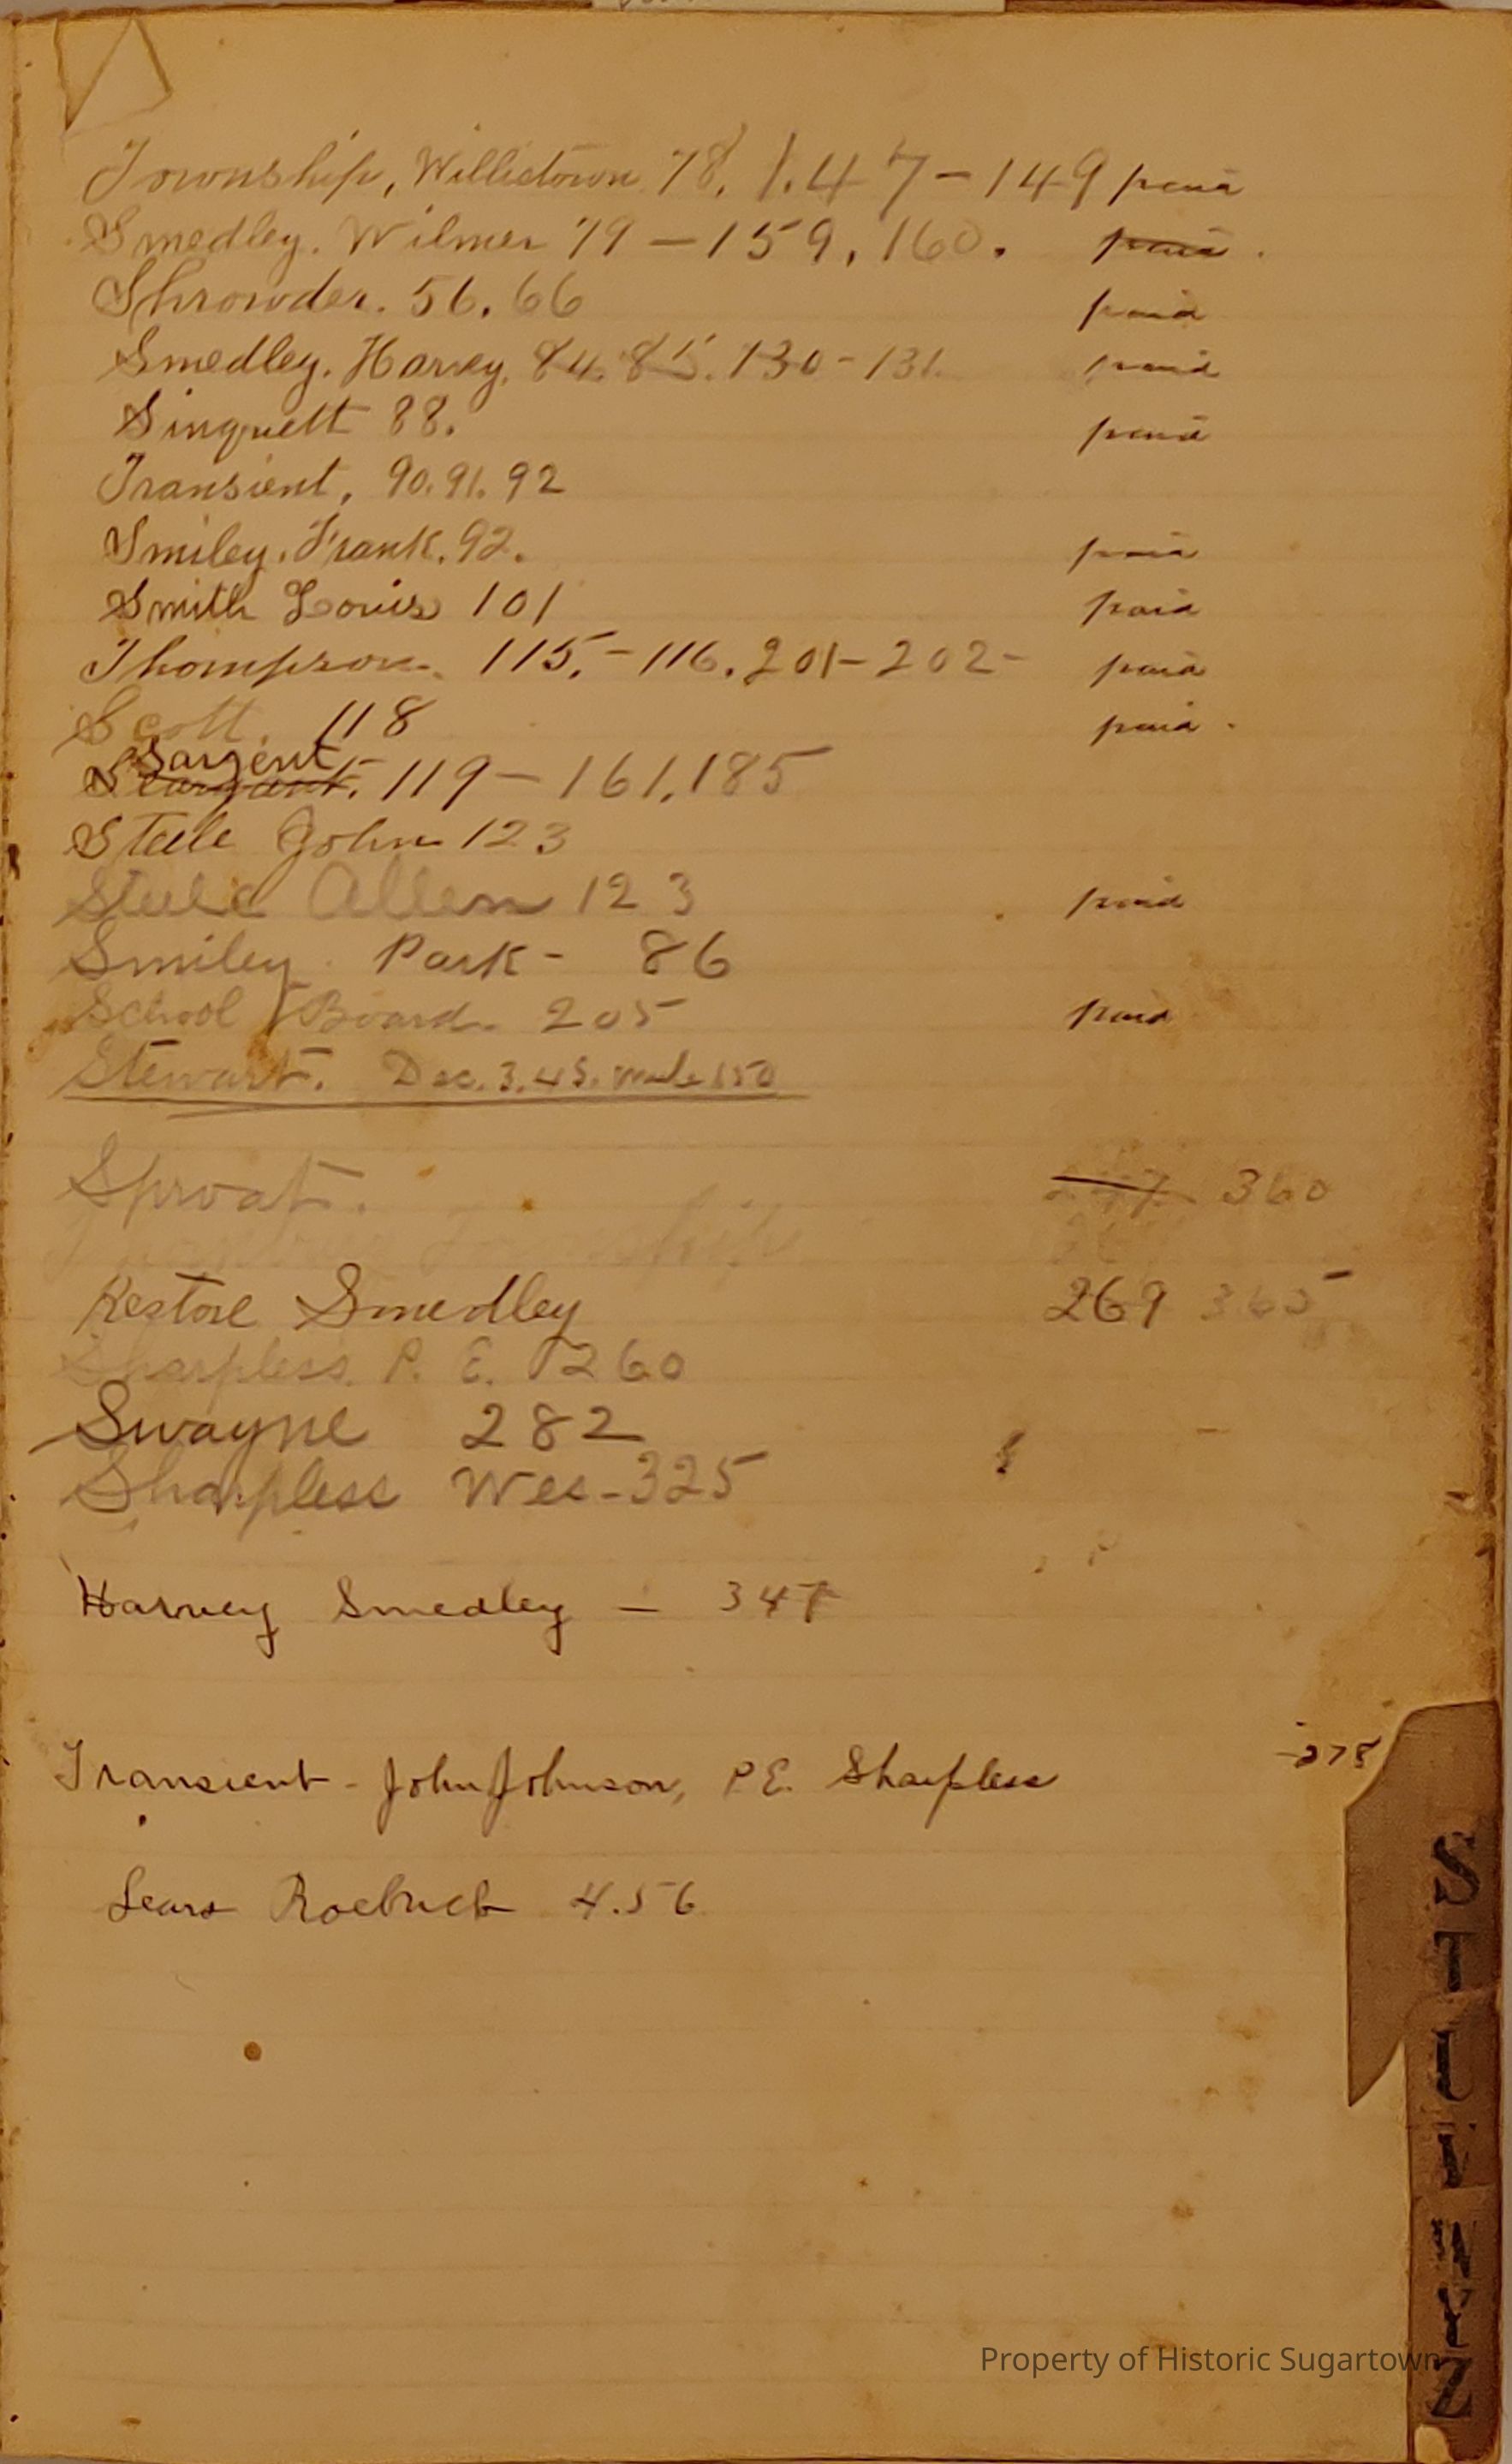 Township, Willistown 78, 1.47-149 paid
Smedley. Wilmer 79 — 159, 160. paid.
Shrowder. 56. 66 paid
Smedley. Harvey. 84. 85. 130-131. paid
Singuett 88. paid
Transient, 90. 91. 92
Smiley. Frank. 92. paid
Smith Louis 101 paid
Thompson. 115.-116. 201-202- paid
Scott. 118 paid.
Sargent
119 — 161, 185
Steele John 123
Steele Allen 123 paid
Smiley. Park - 86
School Board. 205 paid
Stewart. Dec. 3. 45. 150
Sproat. 360
Township
Restore Smedley 269 365
Sharpless. P. E. 260
Swayne 282
Sharpless Wes-325
Harvey Smedley — 347
Transient - John Johnson, P.E. Sharpless -278
Sears Roebuck 4.56
S
T
Z
Property of Historic Sugartown